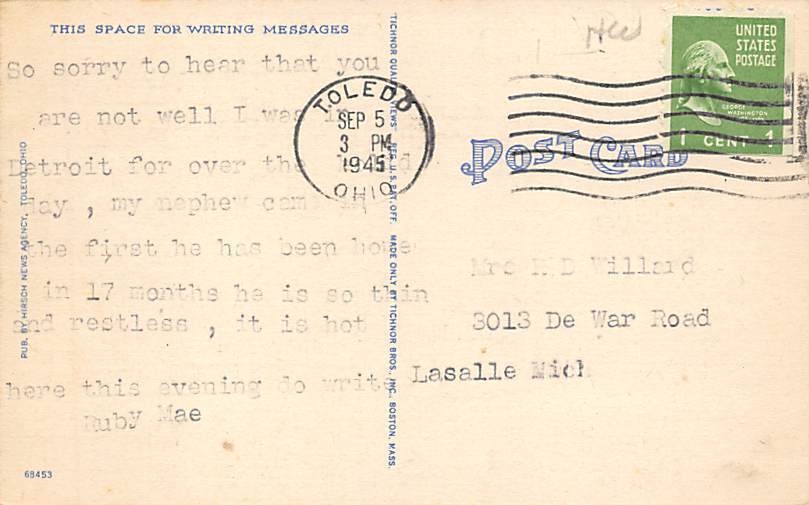 THIS SPACE FOR WRITING MESSAGES
So sorry to hear that you
are not well I was in
Detroit for over the
day , my nephew came in
the first he has been home
in 17 months he is so thin
and restless , it is hot
here this evening do write
Ruby Mae
68453
PUB. BY HIRSCH NEWS AGENCY, TOLEDO, OHIO
TICHNOR QUALITY VIEWS REG. U.S. PAT. OFF. MADE ONLY BY TICHNOR BROS., INC. BOSTON, MASS.
TOLEDO
SEP 5
3 PM
1945
OHIO
POST CARD
UNITED
STATES
POSTAGE
GEORGE
WASHINGTON
1 CENT 1
Mrs H D Willard
3013 De War Road
Lasalle Mich